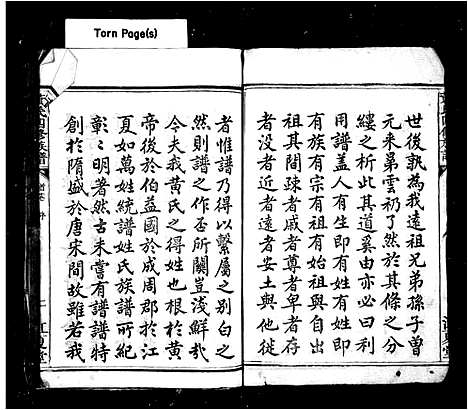 Torn Page(s)
世後孰為我遠祖兄弟孫子曽
元来昴雲礽了然於其條之分
縷之析此其道奚由亦必曰利
用譜盖人有生即有姓有姓即
有族有宗有祖有始祖與自出
祖其間疎者戚者尊者卑者存
者没者近者遠者安土與他徙
者惟譜乃得以繫屬之别白之
然則譜之作否所關豈淺鮮㢤
今夫我黄氏之得姓也根於黄
帝後於伯益國於成周郡於江
夏如萬姓統譜姓氏族譜所紀
彰彰明著然古未嘗有譜譜特
創於隋盛於唐宋間故雖若我
江夏堂